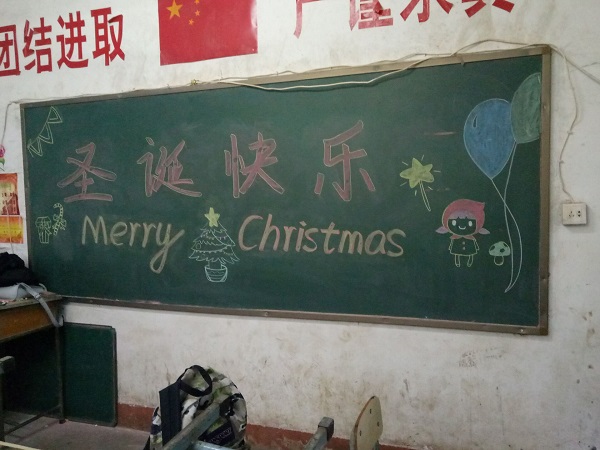 团结进取
严谨求真
圣诞快乐
Merry Christmas